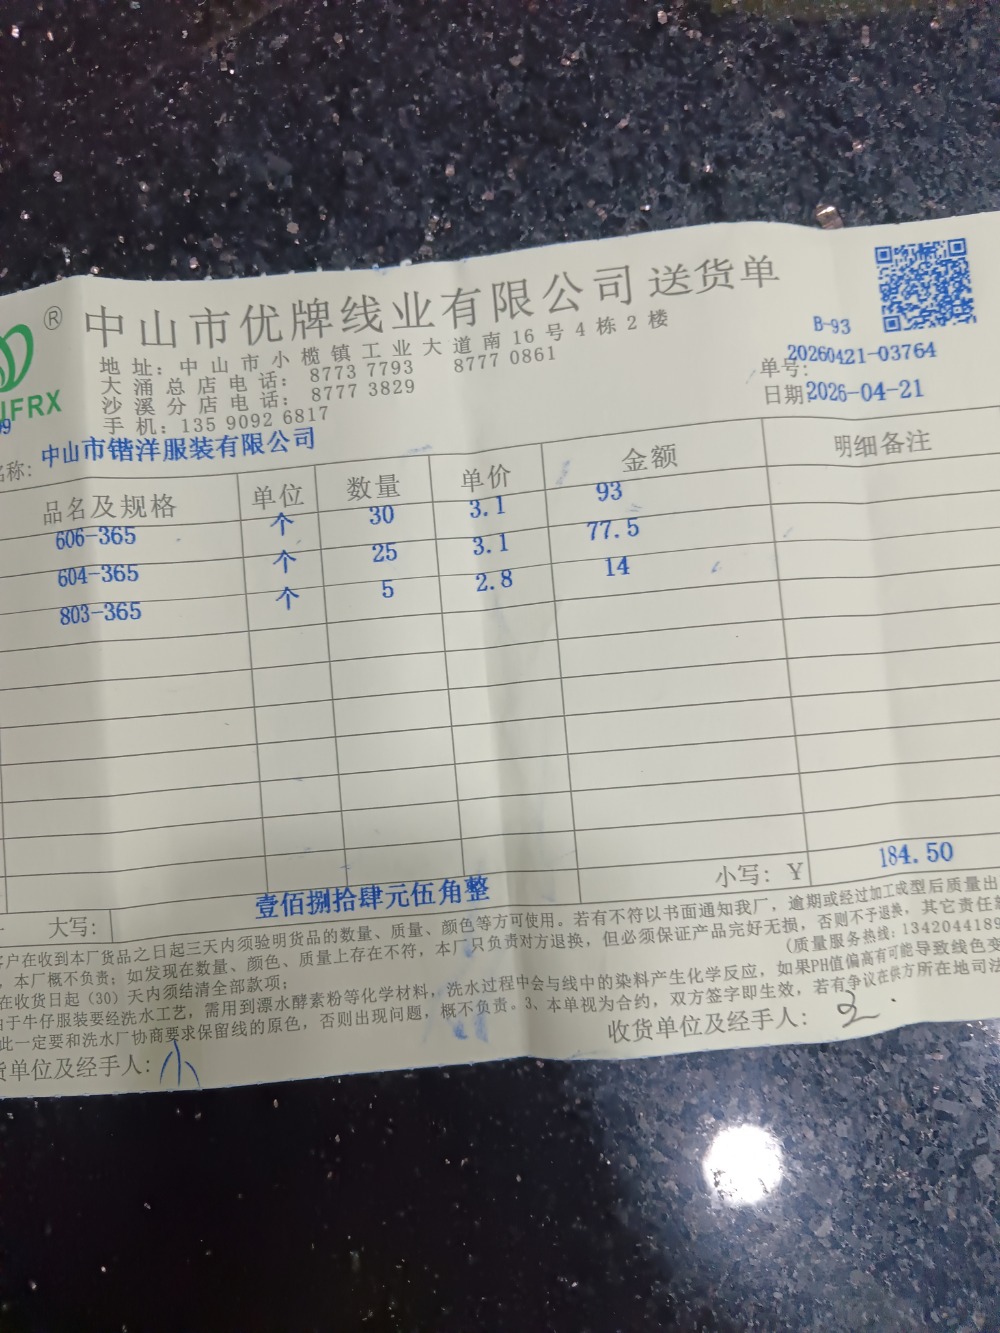 ®
中山市优牌线业有限公司 送货单
地址：中山市小榄镇工业大道南16号4栋2楼
大涌总店电话： 8773 7793 8777 0861
沙溪分店电话： 8777 3829
手机：135 9092 6817
IFRX
B-93
单号：20260421-03764
日期2026-04-21
名称：中山市锴洋服装有限公司
品名及规格 单位 数量 单价 金额 明细备注
606-365 个 30 3.1 93
604-365 个 25 3.1 77.5
803-365 个 5 2.8 14
小写：￥ 184.50
大写： 壹佰捌拾肆元伍角整
客户在收到本厂货品之日起三天内须验明货品的数量、质量、颜色等方可使用。若有不符以书面通知我厂，逾期或经过加工成型后质量出
，本厂概不负责；如发现在数量、颜色、质量上存在不符，本厂只负责对方退换，但必须保证产品完好无损，否则不予退换，其它责任
在收货日起（30）天内须结清全部款项； (质量服务热线：1342044189
由于牛仔服装要经洗水工艺，需用到漂水酵素粉等化学材料，洗水过程中会与线中的染料产生化学反应，如果PH值偏高有可能导致线色变
此一定要和洗水厂协商要求保留线的原色，否则出现问题，概不负责。3、本单视为合约，双方签字即生效，若有争议在供方所在地司法
货单位及经手人：小
收货单位及经手人：